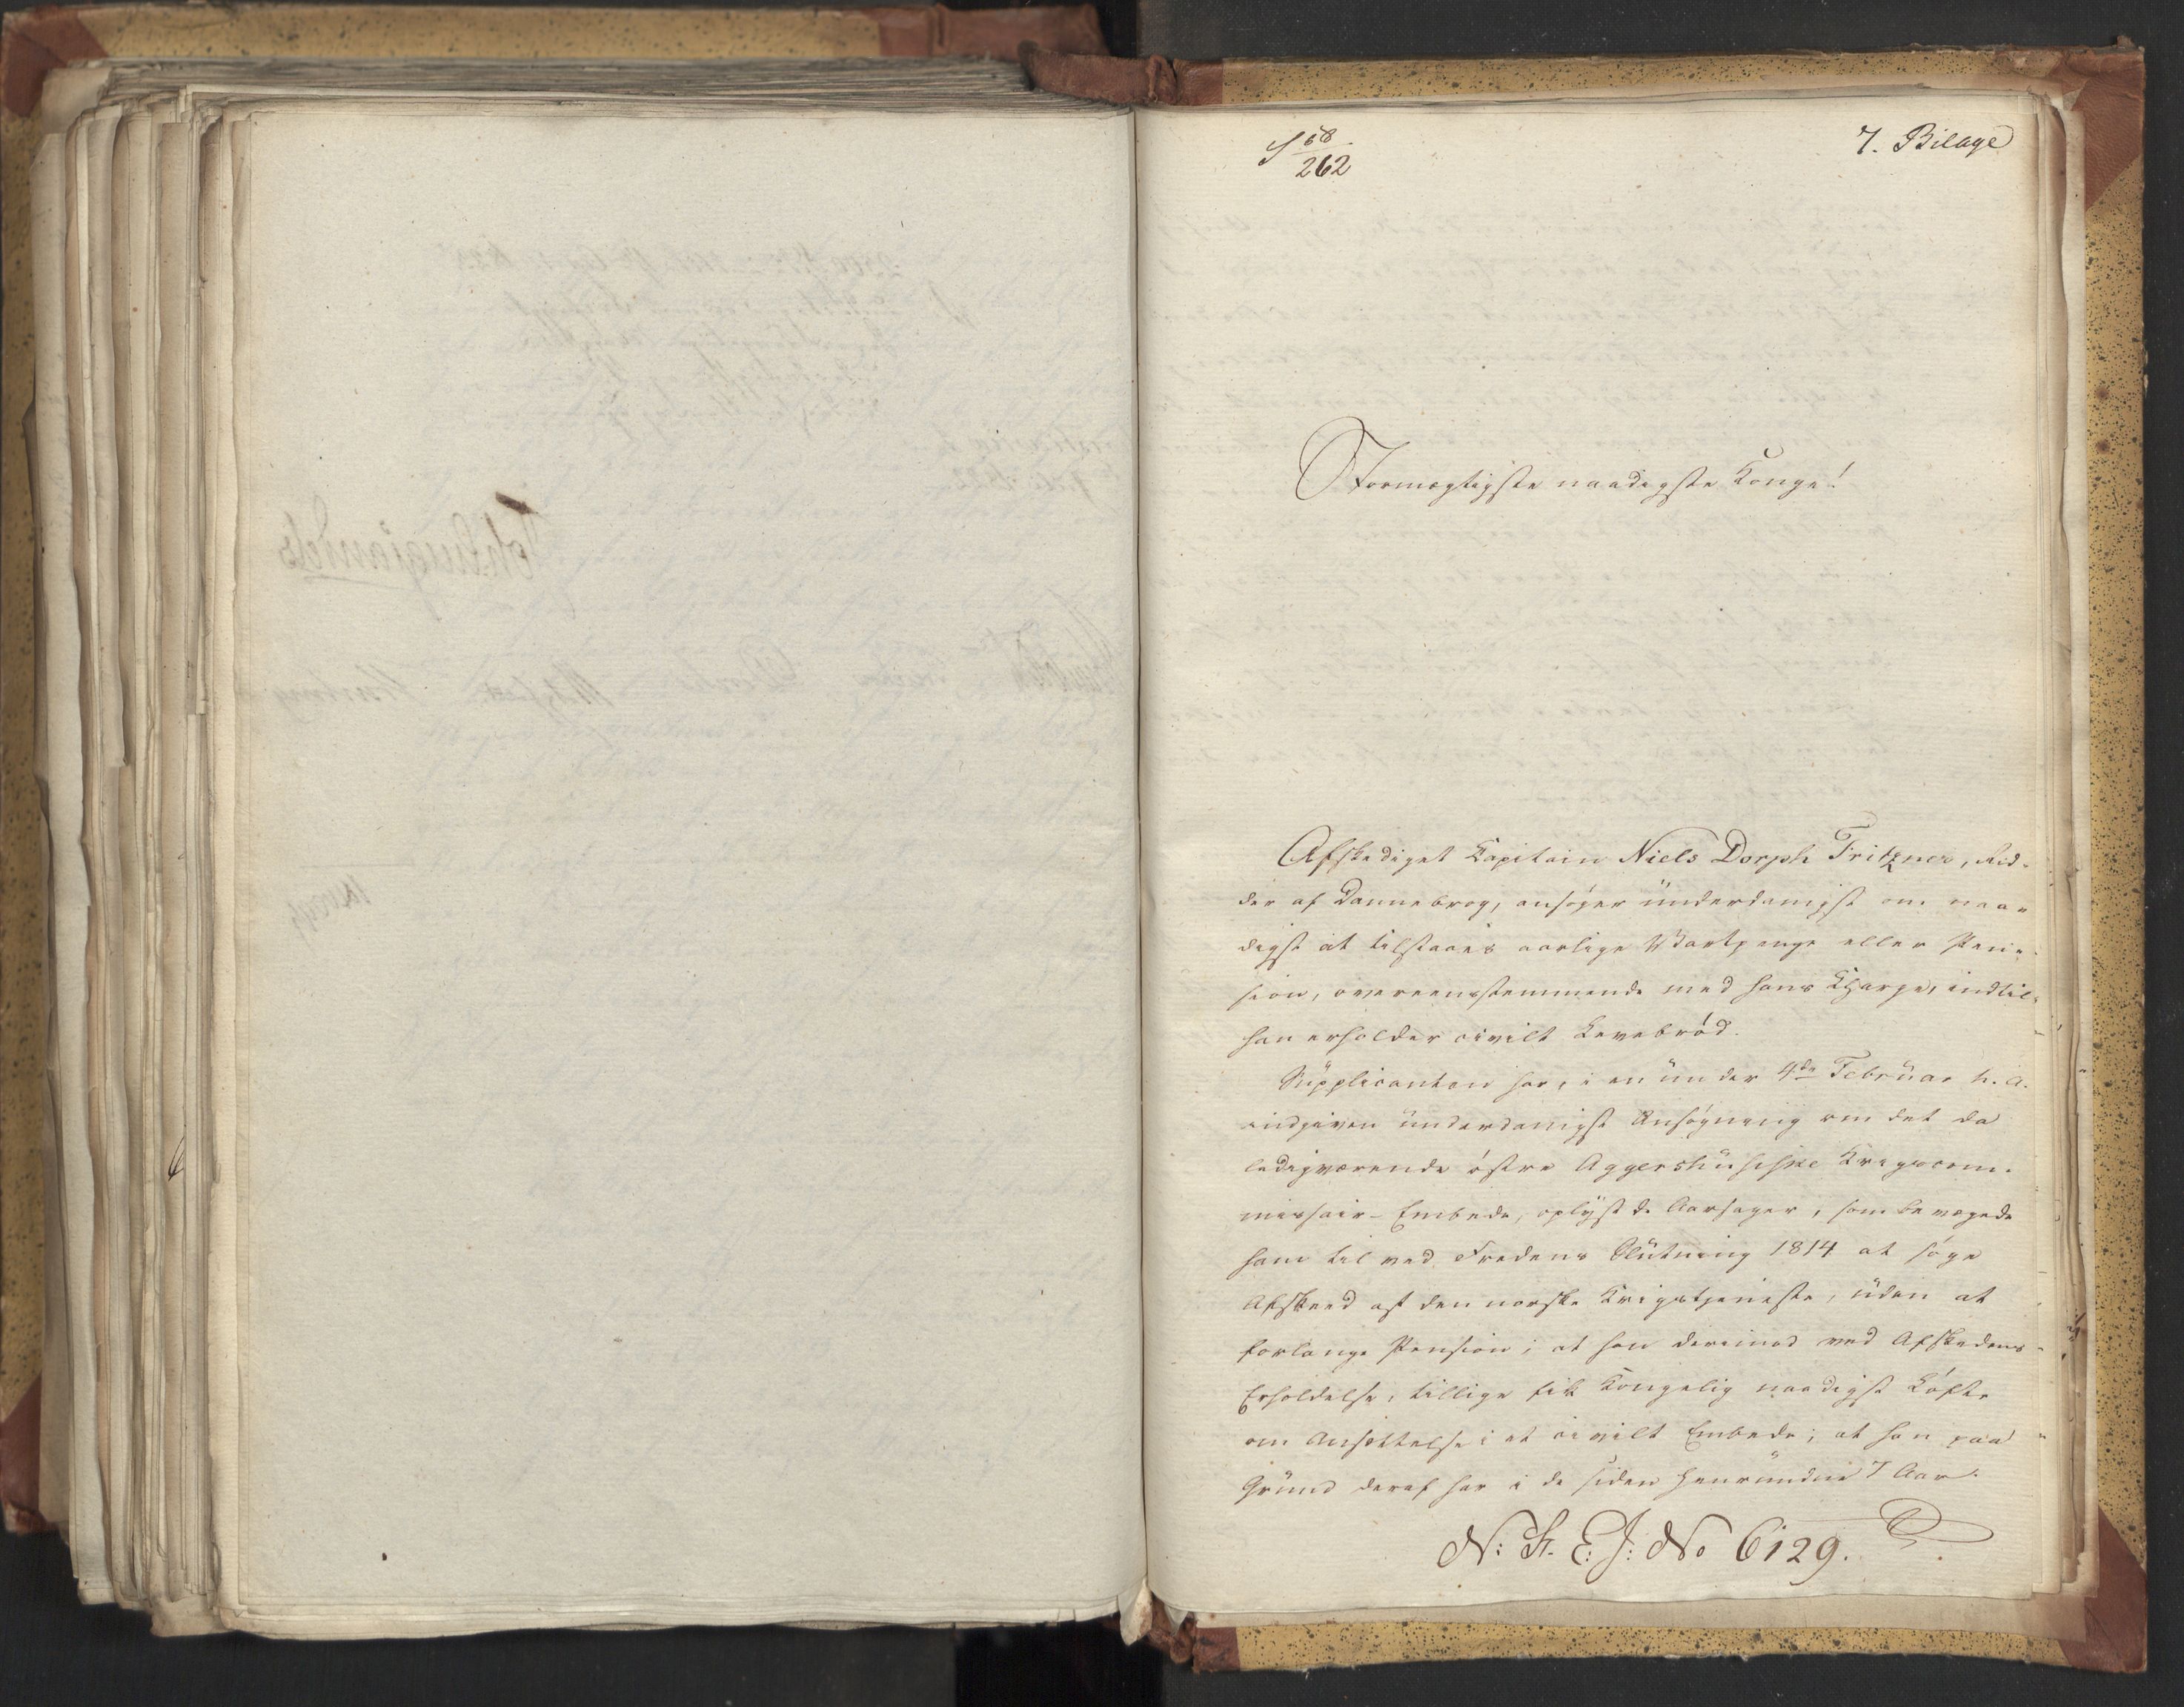 S 58
262
7. Bilage
Stormægtigste naadigste Konge!
Afskediget Kapitain Niels Dorph Fritzner, Rid-
der af Dannebrog, ansøger ünderdanigst om naa-
digst at tilstaaes aarlige Vartpenge eller Pen-
sion, overeensstemmende med hans Charge, indtil
han erholder civilt Levebrød.
Süpplicanten har, i en ünder 4de Februar h. a.
indgiven ünderdanigst Ansøgning om det da
ledigværende østre Aggershüsiske Krigscom-
missair-Embede, oplyst de Aarsager, som bevægede
ham til ved Fredens Slütning 1814 at søge
Afskeed af den norske Krigstjeneste, üden at
forlange Pension; at han derimod ved Afskedens
Erholdelse, tillige fik Kongelig naadigst Løfte
om Ansættelse i et civilt Embede; at han paa
Gründ deraf har i de siden henründne 7 Aar
N: St. E: J: No 6129.